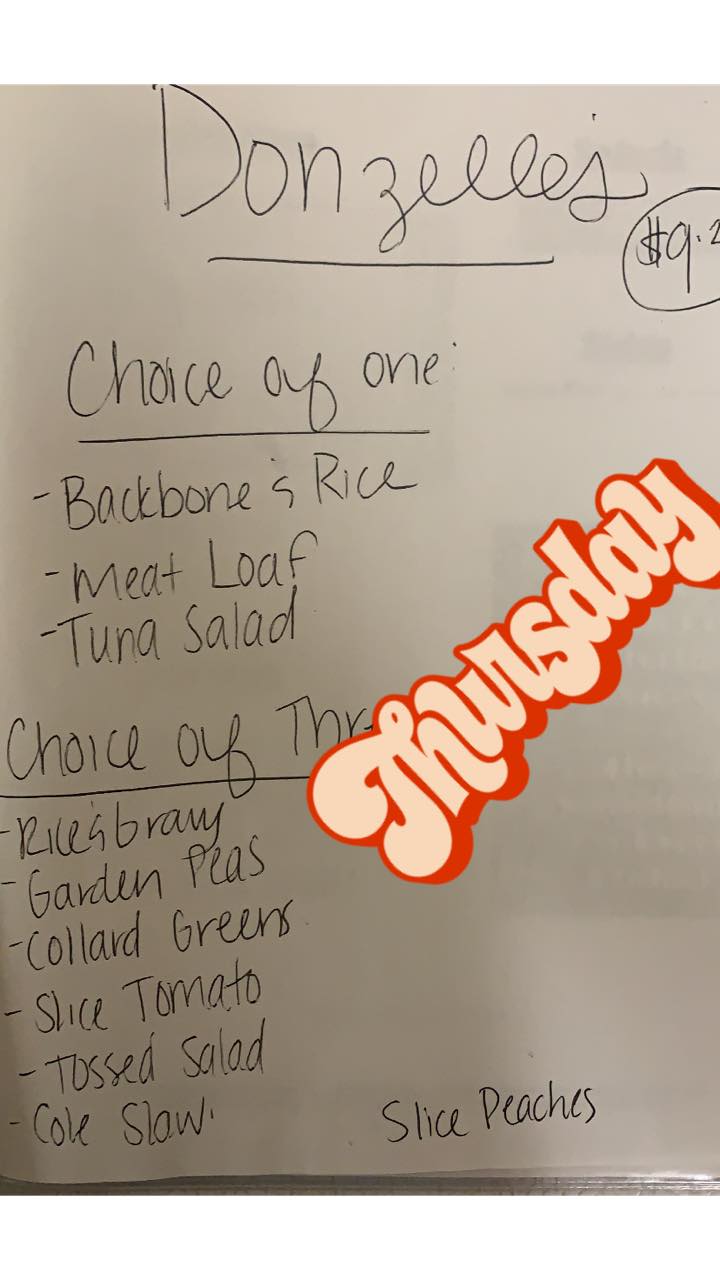 Donzelle's
$9.2
Choice of one:
- Backbone & Rice
- Meat Loaf
- Tuna Salad
Thursday
Choice of Thr
- Rice & Gravy
- Garden Peas
- Collard Greens
- Slice Tomato
- Tossed Salad
- Cole Slaw
Slice Peaches